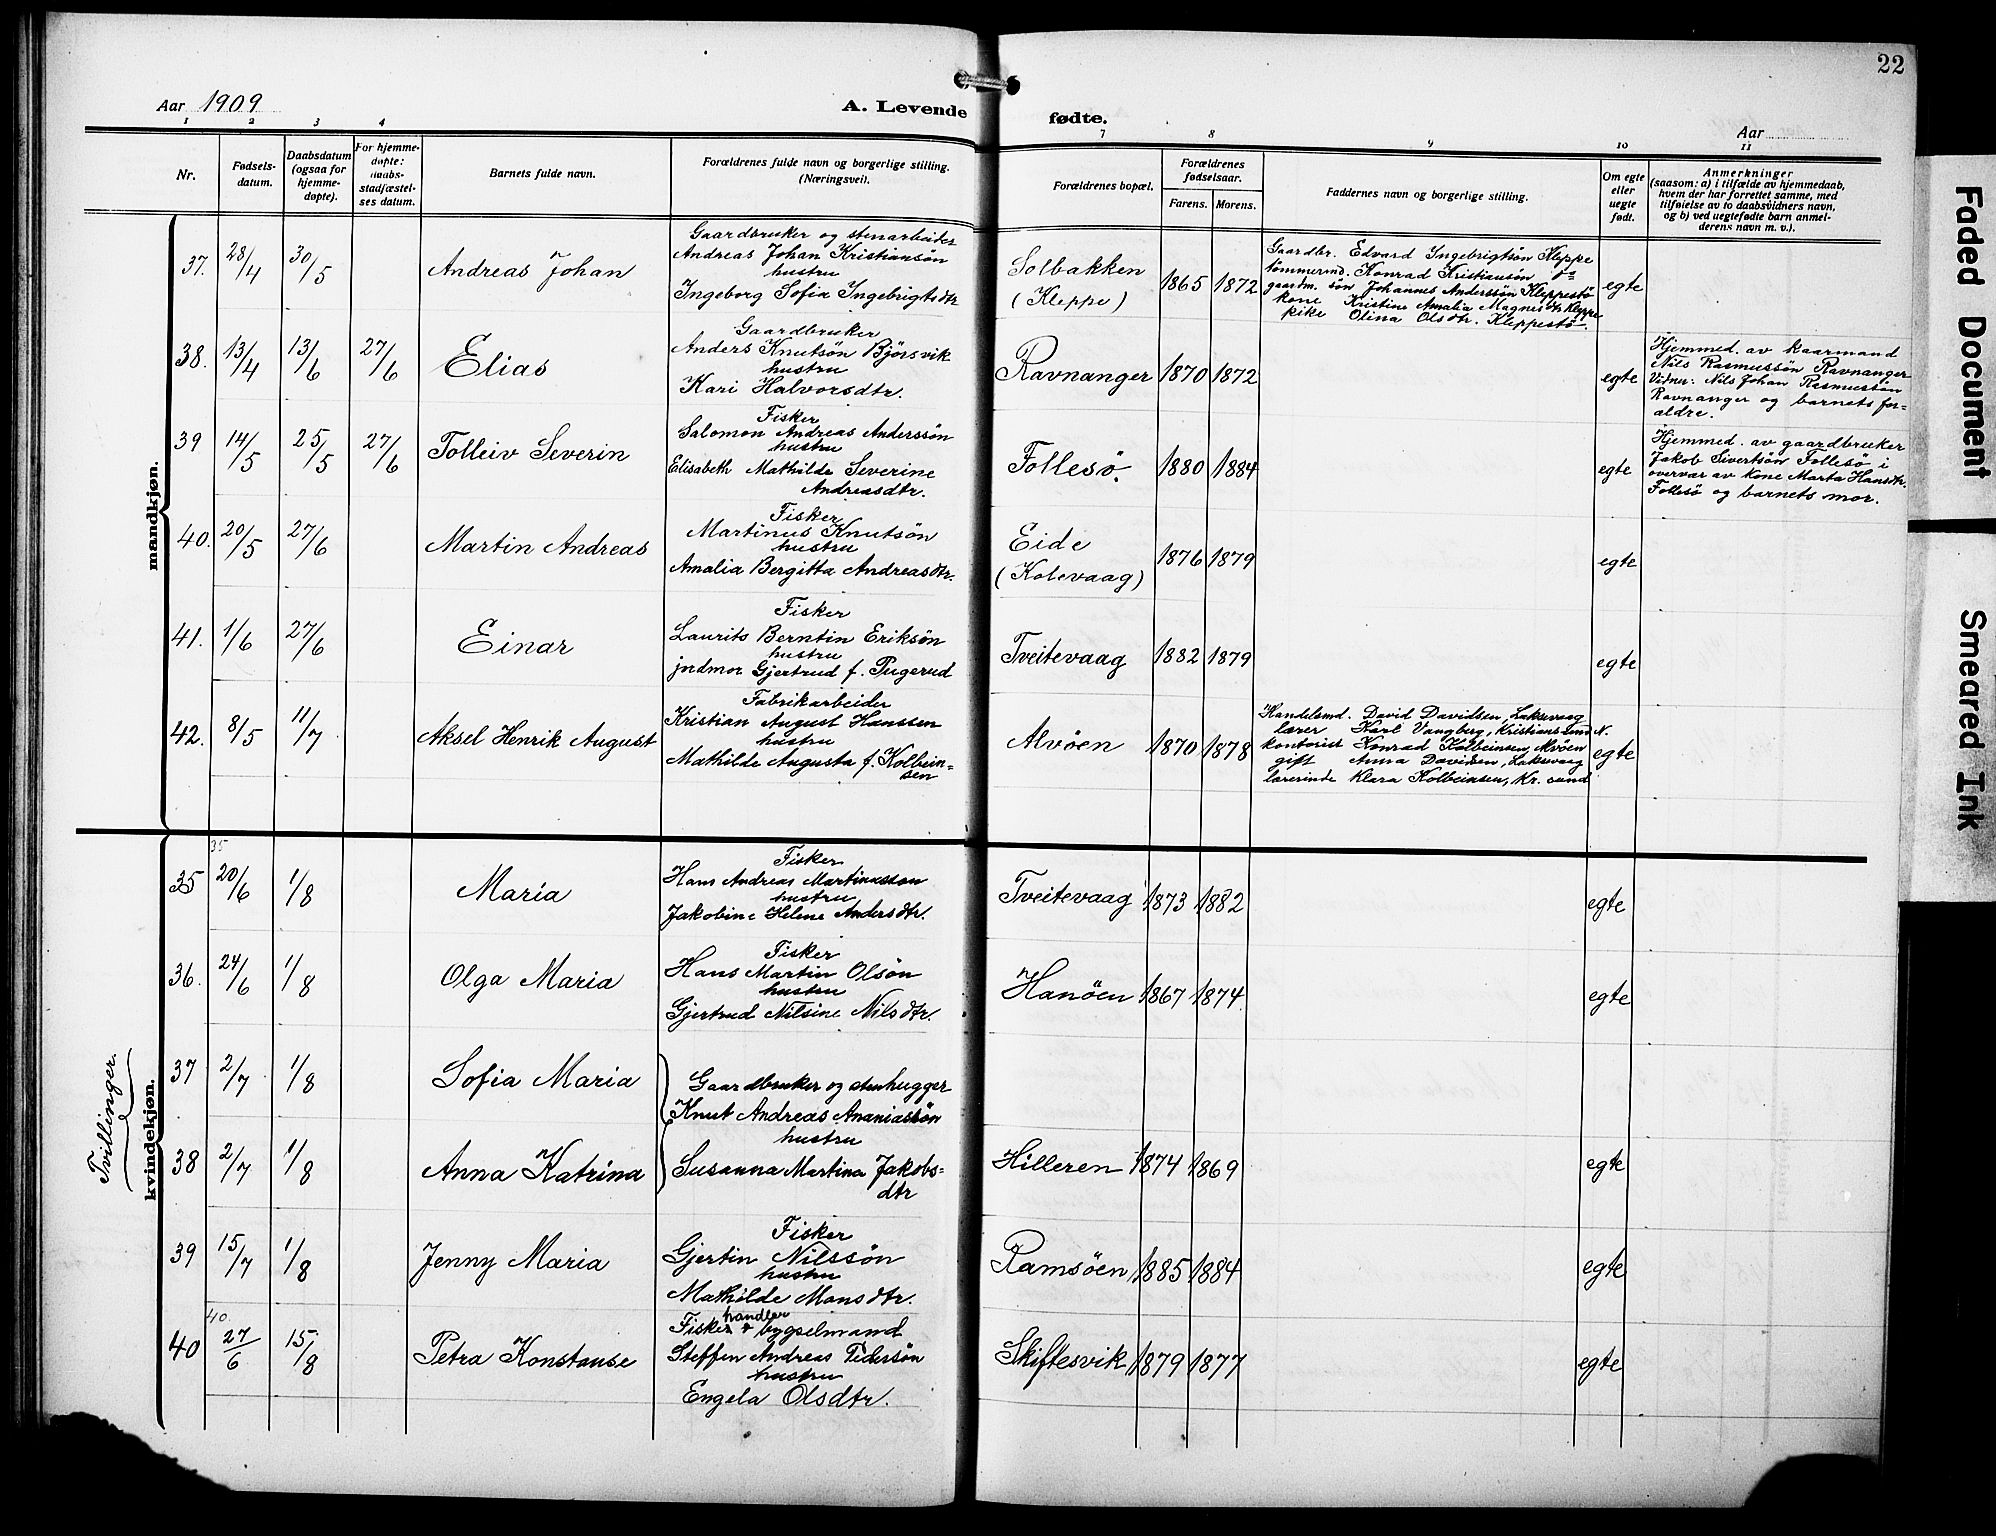 22
Aar 1909
A. Levende fødte.
Aar
1 2 3 4 7 8 9 10 11
Nr.
Fødsels-
datum.
Daabsdatum
(ogsaa for
hjemme-
døpte).
For hjemme-
døpte:
daabs-
stadfæstel-
ses datum.
Barnets fulde navn.
Forældrenes fulde navn og borgerlige stilling.
(Næringsvei).
Forældrenes bopæl.
Forældrenes
fødselsaar.
Farens. Morens.
Faddernes navn og borgerlige stilling.
Om egte
eller
uegte
født.
Anmerkninger
(saasom: a) i tilfælde av hjemmedaab,
hvem der har forrettet samme, med
tilføielse av to daabsvidners navn,
og b) ved uegtefødte barn anmel-
derens navn m. v.).
mandkjøn.
37. 28/4 30/5 Andreas Johan
Gaardbruker og stenarbeider
Andreas Johan Kristiansön
hustru
Ingeborg Sofia Ingebrigtsdtr
Solbakken
(Kleppe)
1865 1872
Gaardbr. Edvard Ingebrigtsön Kleppe
tömmermd. Konrad Kristiansön do
gaardm. sön Johannes Anderssön Kleppestö
kone Kristine Amalia Magnesdtr Kleppe
pike Olina Olsdtr. Kleppestö.
egte
38. 13/4 13/6 27/6 Elias
Gaardbruker
Anders Knutsön Björsvik
hustru
Kari Halvorsdtr.
Ravnanger 1870 1872 egte
Hjemmed. av kaarmand
Nils Rasmussön Ravnanger
Vidner: Nils Johan Rasmussön
Ravnanger og barnets for-
ældre.
39 14/5 25/5 27/6 Tolleiv Severin
Fisker
Salomon Andreas Anderssön
hustru
Elisabeth Mathilde Severine
Andreasdtr.
Follesö. 1880 1884 egte
Hjemmed. av gaardbruker
Jakob Sivertsön Follesö i
overvær av kone Marta Hansdtr.
Follesö og barnets mor.
40. 20/5 27/6 Martin Andreas
Fisker
Martinus Knutsön
hustru
Amalia Bergitta Andreasdtr.
Eide
(Kolevaag)
1876 1879 egte
41. 1/6 27/6 Einar
Fisker
Laurits Berntin Eriksön
hustru
jndmor Gjertrud f. Pugerud
Tveitevaag 1882 1879 egte
42. 8/5 11/7 Aksel Henrik August
Fabrikarbeider
Kristian August Hanssen
hustru
Mathilde Augusta f. Kolbein-
sen
Alvöen 1870 1878
Handelsmd. David Davidsen, Laksevaag
lærer Karl Vangberg, Kristianssund N.
kontorist Konrad Kolbeinsen, Alvöen
gift Anna Davidsen, Laksevaag
lærerinde Klara Kolbeinsen, Kr. sund
egte
kvindekjøn.
35
35 20/6 1/8 Maria
Fisker
Hans Andreas Martinusson
hustru
Jakobine Helene Andersdtr.
Tveitevaag 1873 1882 egte
36. 24/6 1/8 Olga Maria
Fisker
Hans Martin Olsön
hustru
Gjertrud Nilsine Nilsdtr.
Hanöen 1867 1874 egte
Tvillinger.
37 2/7 1/8 Sofia Maria
38 2/7 1/8 Anna Katrina
Gaardbruker og stenhugger
Knut Andreas Ananiassön
hustru
Susanna Martina Jakobs-
dtr
Hilleren 1874 1869 egte
39 15/7 1/8 Jenny Maria
Fisker
Gjertin Nilssön
hustru
Mathilde Monsdtr.
Ramsöen 1885 1884 egte
40.
40 27/6 15/8 Petra Konstanse
Fiskehandler & bygselmand
Steffen Andreas Pedersön
hustru
Engela Olsdtr.
Skiftesvik 1879 1877 egte
Faded Document
Smeared Ink